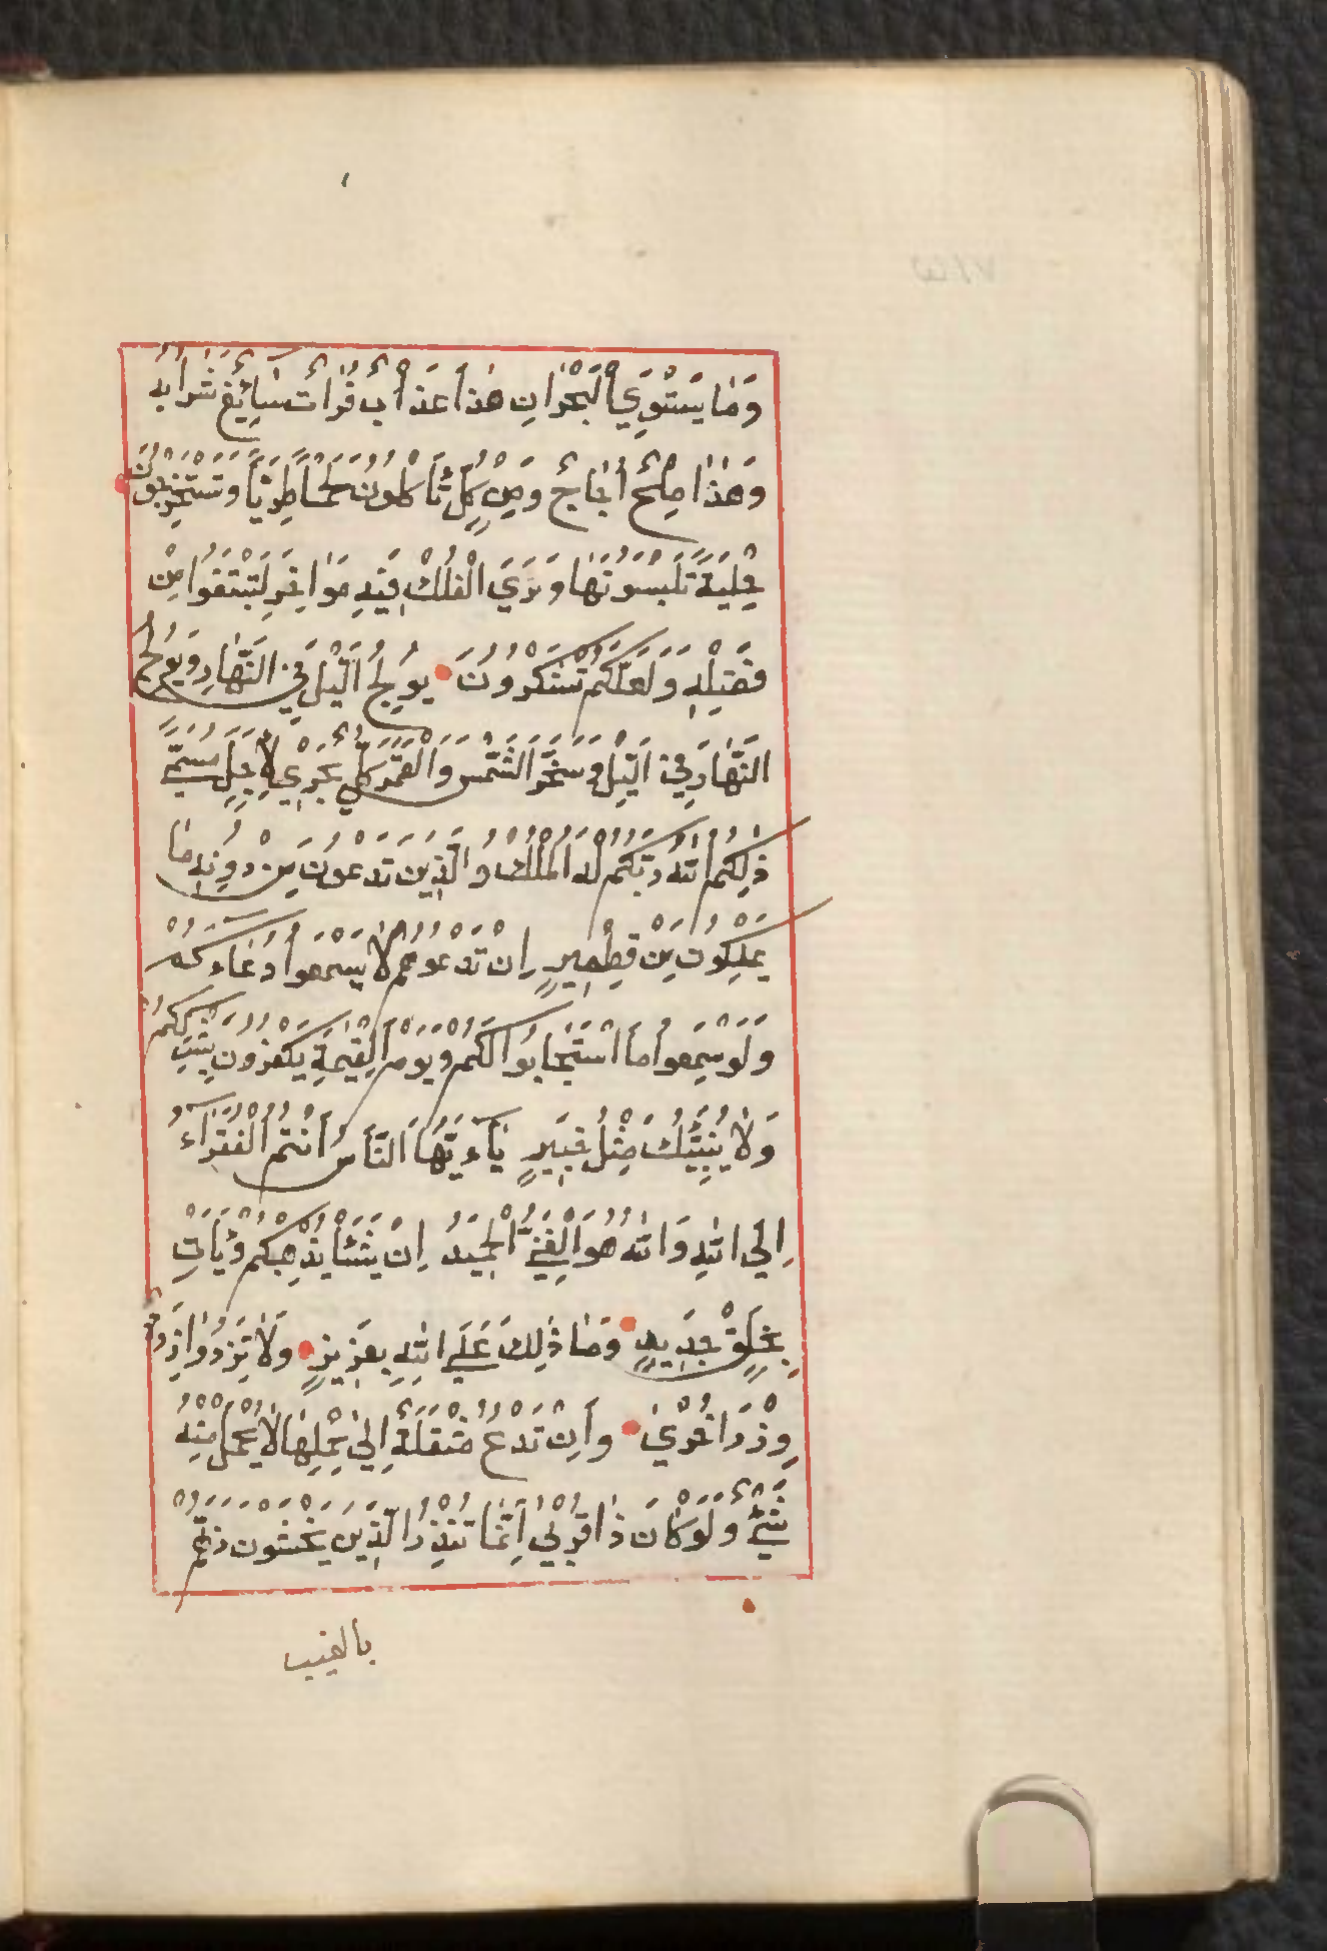 وَمَا يَسْتَوِي الْبَحْرَانِ هٰذَا عَذْابٌ فُرَاتٌ سَائِغٌ شَرَابُهُ
وَهٰذَا مِلْحٌ اُجَاجٌ وَمِنْ كُلٍّ تَأْكُلُونَ لَحْمًا طَرِيًّا وَتَسْتَخْرِجُونَ
حِلْيَةً تَلْبَسُونَهَا وَتَرَيَ الْفُلْكَ فِيْهِ مَوَاخِرَ لِتَبْتَغُوا مِنْ
فَضْلِهِ وَلَعَلَّكُمْ تَشْكُرُونَ يُولِجُ الَّيْلَ فِي النَّهَارِ وَيُولِجُ
النَّهَارَ فِي الَّيْلِ وَسَخَّرَ الشَّمْسَ وَالْقَمَرَ كُلٌّ يَجْرِي لِأَجَلٍ مُسَمًّي
ذٰلِكُمُ اللّٰهُ رَبُّكُمْ لَهُ الْمُلْكُ وَالَّذِينَ تَدْعُونَ مِنْ دُونِهِ مَا
يَمْلِكُونَ مِنْ قِطْمِيرٍ اِنْ تَدْعُوهُمْ لَا يَسْمَعُوا دُعَاءَكُمْ
وَلَوْ سَمِعُوا مَا اسْتَجَابُوا لَكُمْ وَيَوْمَ الْقِيٰمَةِ يَكْفُرُونَ بِشِرْكِكُمْ
وَلَا يُنَبِّئُكَ مِثْلُ خَبِيرٍ يَاءَيُّهَا النَّاسُ أَنْتُمُ الْفُقَرَاءُ
اِلَي اللّٰهِ وَاللّٰهُ هُوَ الْغَنِيُّ الْحَمِيدُ اِنْ يَشَأْ يُذْهِبْكُمْ وَيَأْتِ
بِخَلْقٍ جَدِيدٍ وَمَا ذٰلِكَ عَلَي اللّٰهِ بِعَزِيزٍ وَلَا تَزِرُ وَازِرَةٌ
وِزْرَ اُخْرٰي وَاِنْ تَدْعُ مُثْقَلَةٌ اِلٰي حِمْلِهَا لَا يُحْمَلْ مِنْهُ
شَيْءٌ وَلَوْ كَانَ ذَا قُرْبٰي اِنَّمَا تُنْذِرُ الَّذِينَ يَخْشَوْنَ رَبَّهُمْ
بالغيب